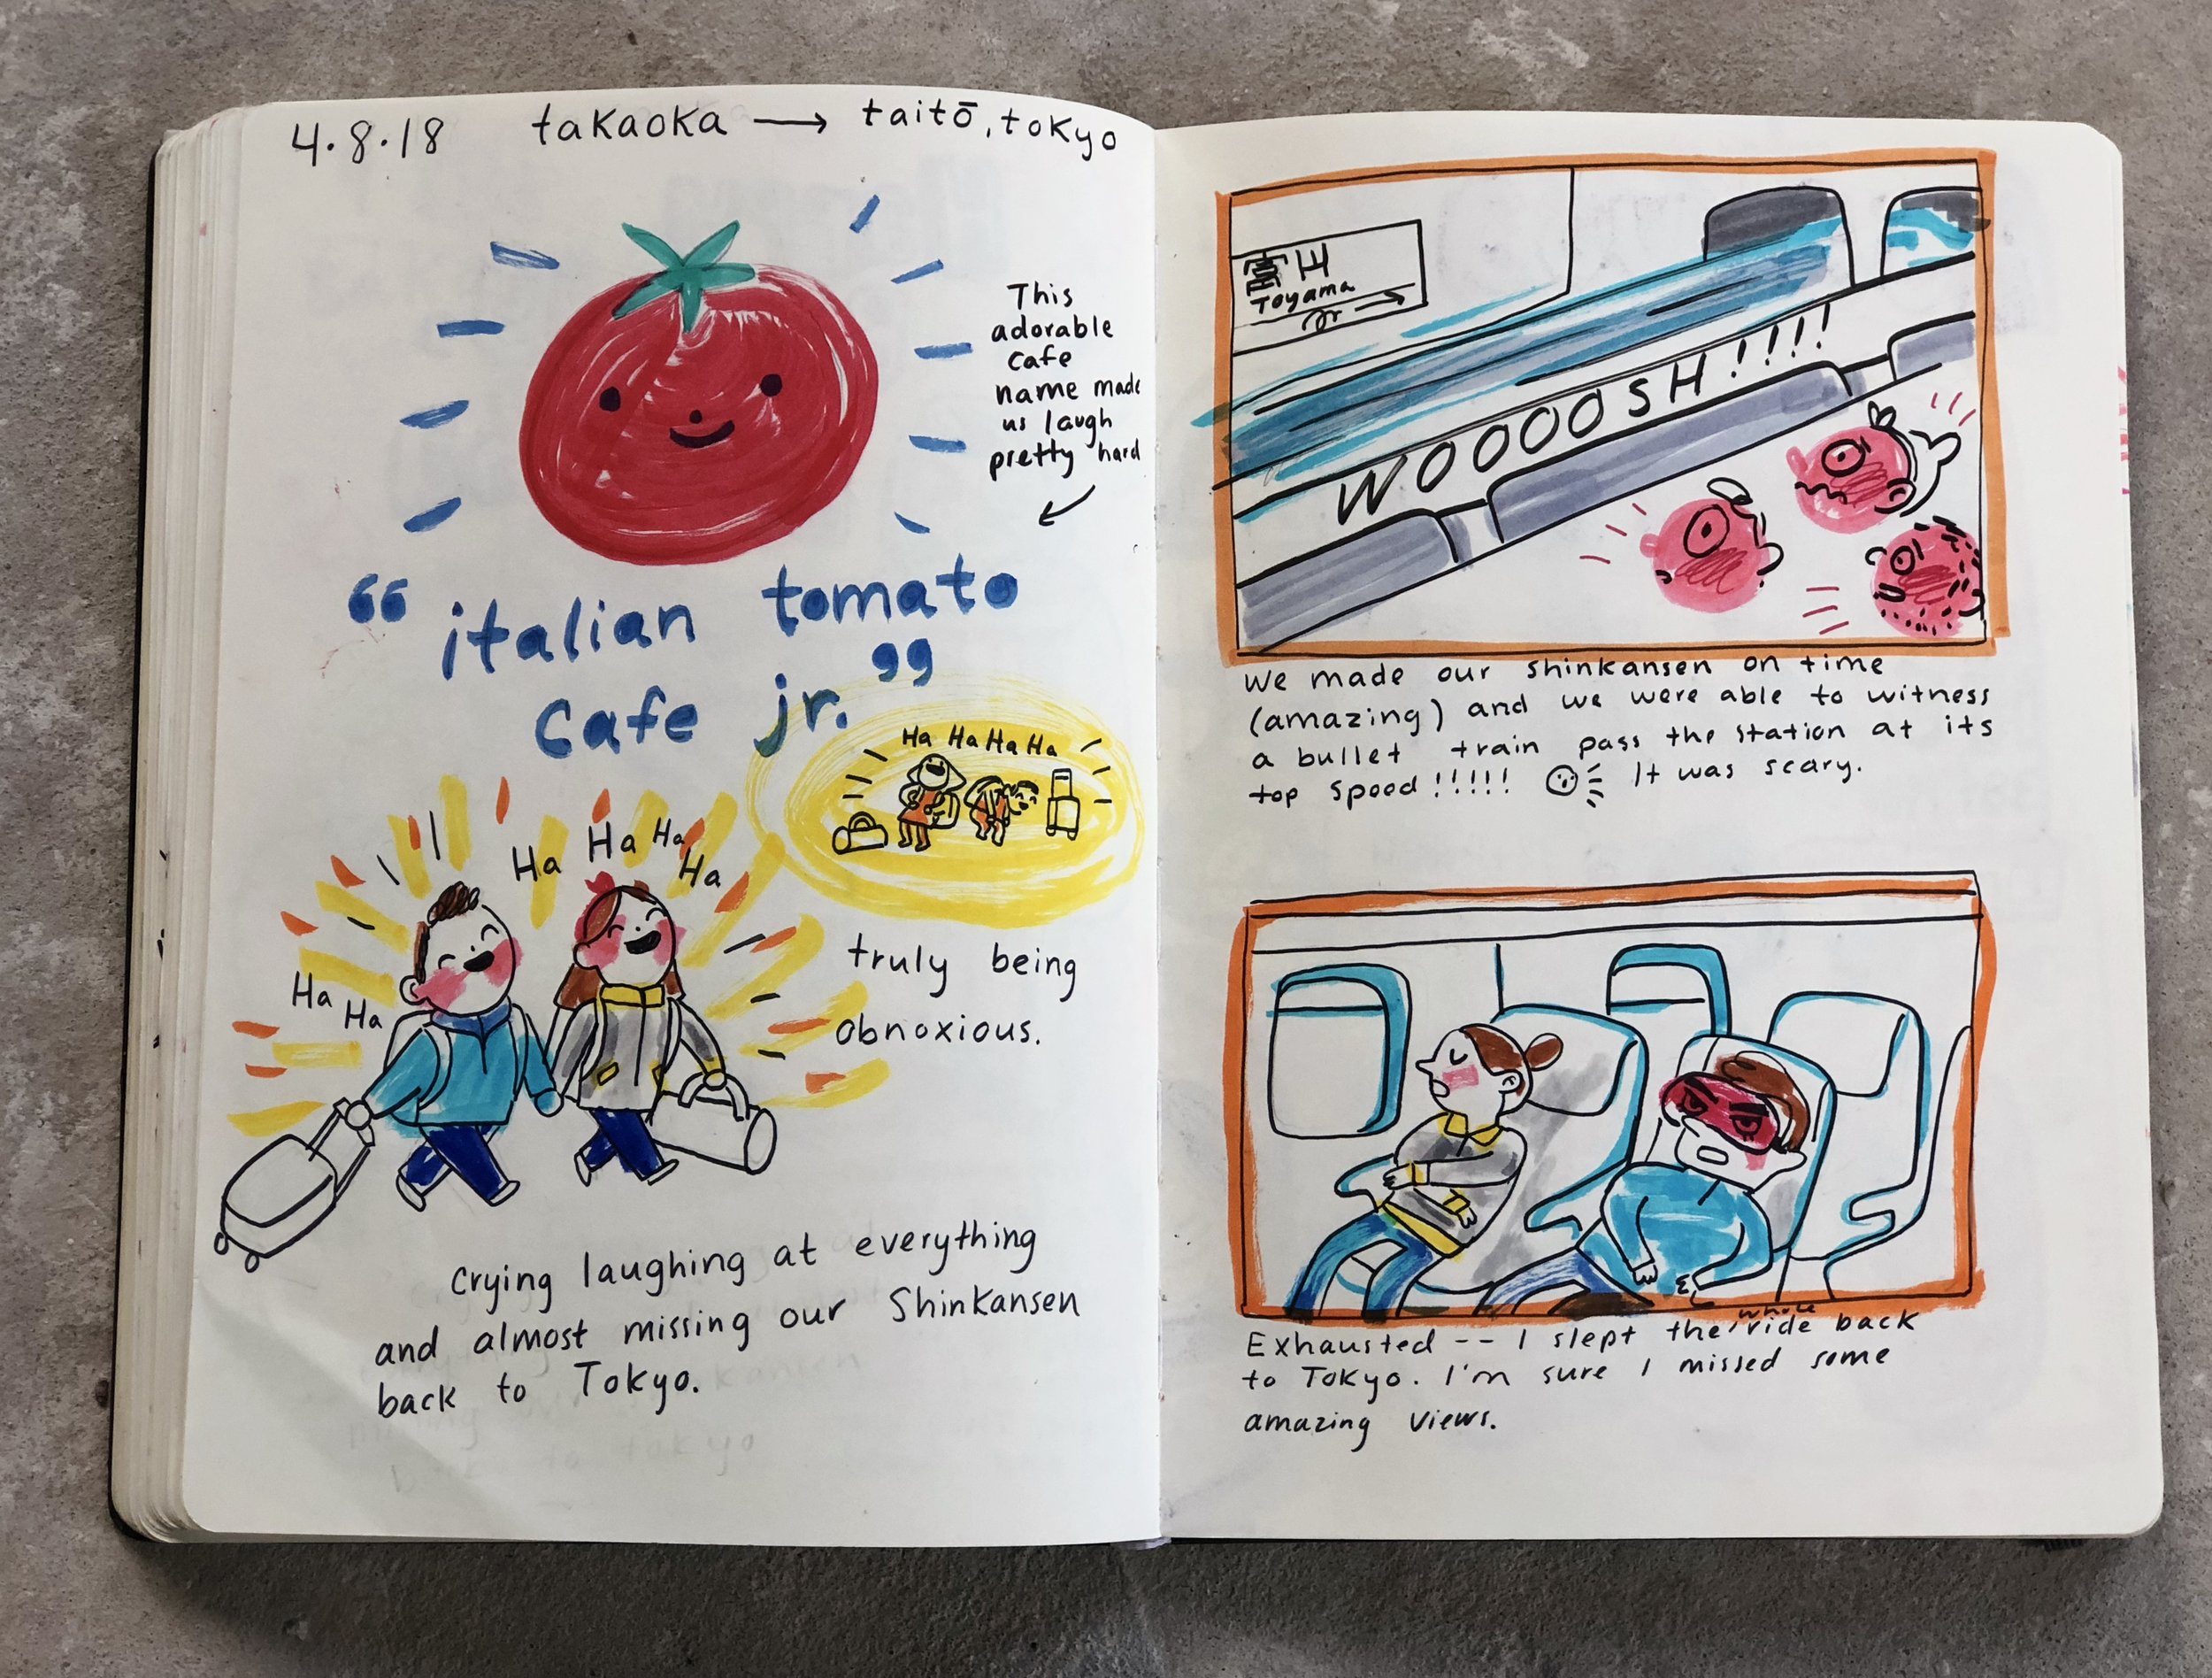 4.8.18 takaoka → taitō, tokyo
This
adorable
cafe
name made
us laugh
pretty hard
“italian tomato
Cafe jr.”
Ha Ha Ha Ha
Ha Ha Ha
Ha
Ha
Ha
truly being
obnoxious.
Crying laughing at everything
and almost missing our Shinkansen
back to Tokyo.
富山
Toyama
WOOOOSH!!!!
We made our shinkansen on time
(amazing) and we were able to witness
a bullet train pass the station at its
top speed!!!!! It was scary.
Exhausted -- I slept the whole ride back
to Tokyo. I'm sure I missed some
amazing views.